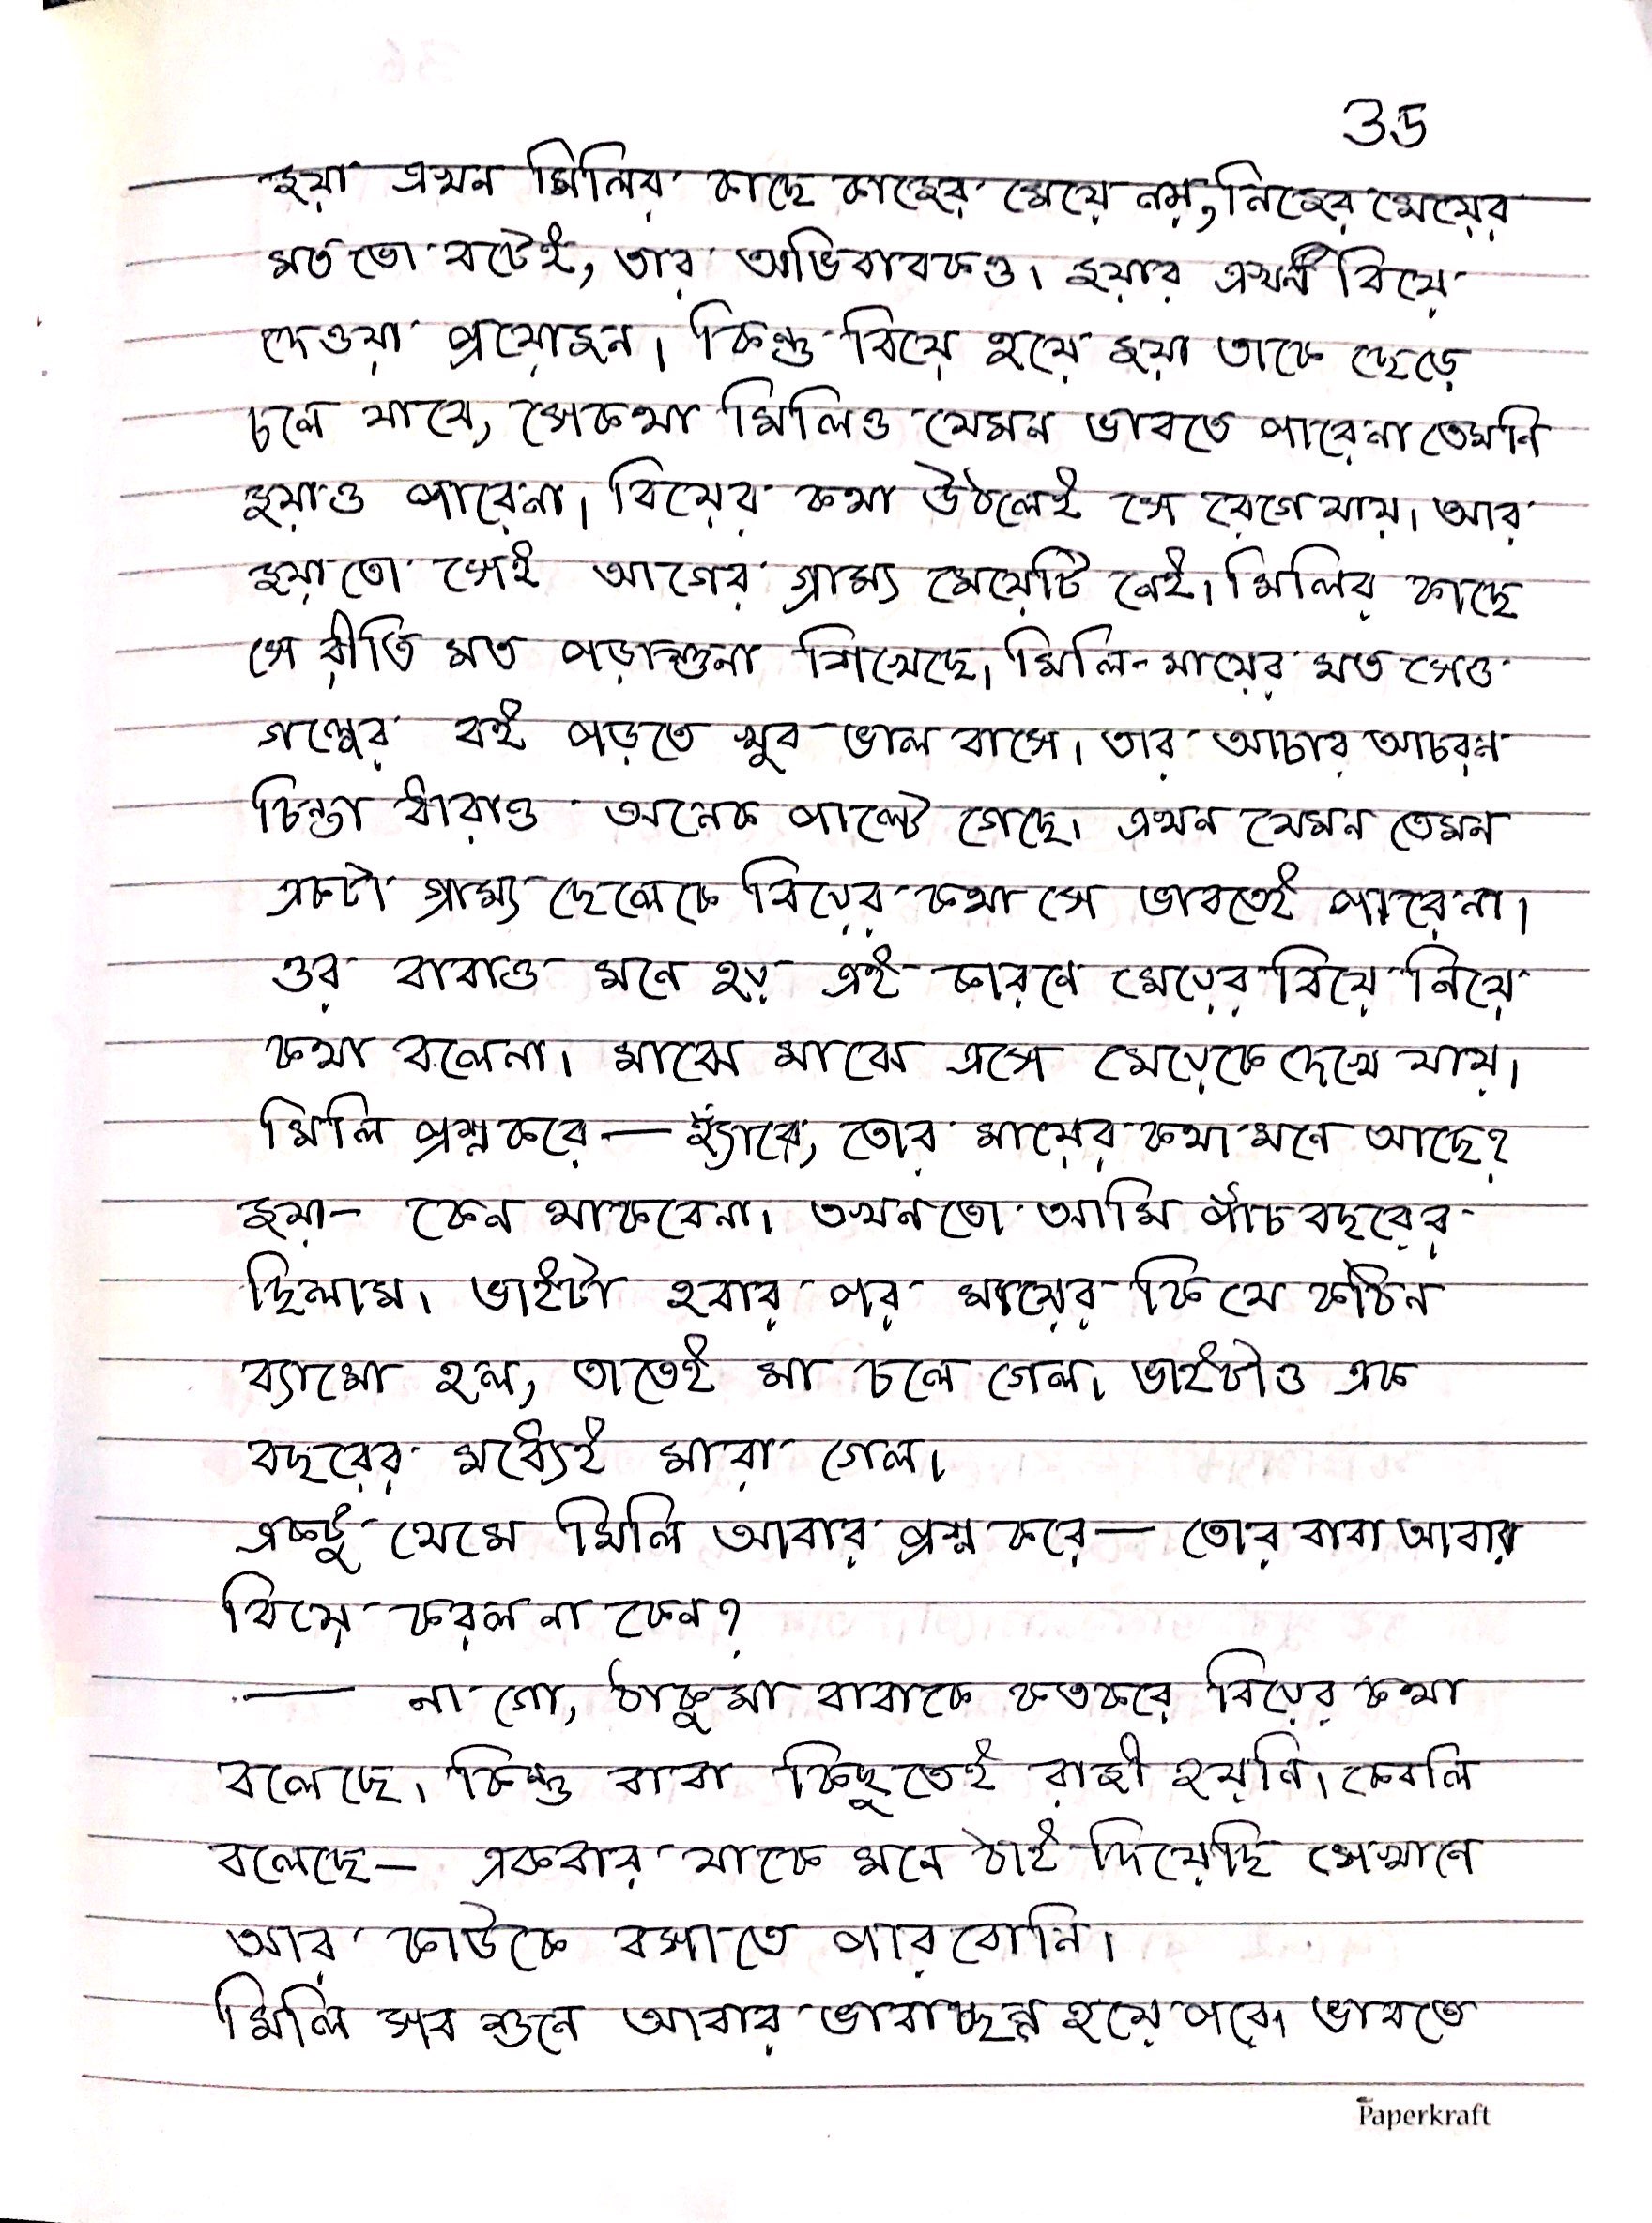 35
জয়া এখন মিলির কাছে কাজের মেয়ে নয়, নিজের মেয়ের
মত তো বটেই, তার অভিবাবকও। জয়ার এখনই বিয়ে
দেওয়া প্রয়োজন। কিন্তু বিয়ে হয়ে জয়া তাকে ছেড়ে
চলে যাবে, সেকথা মিলিও যেমন ভাবতে পারেনা তেমনি
জয়াও পারেনা। বিয়ের কথা উঠলেই সে রেগে যায়। আর
জয়া তো সেই আগের গ্রাম্য মেয়েটি নেই। মিলির কাছে
সে রীতি মত পড়াশুনা শিখেছে। মিলি-মায়ের মত সেও
গল্পের বই পড়তে খুব ভাল বাসে। তার আচার আচরন
চিন্তা ধারাও অনেক পাল্টে গেছে। এখন যেমন তেমন
একটা গ্রাম্য ছেলেকে বিয়ের কথা সে ভাবতেই পারেনা।
ওর বাবাও মনে হয় এই কারনে মেয়ের বিয়ে নিয়ে
কথা বলেনা। মাঝে মাঝে এসে মেয়েকে দেখে যায়।
মিলি প্রশ্ন করে — হ্যাঁরে, তোর মায়ের কথা মনে আছে?
জয়া- কেন থাকবেনা। তখন তো আমি পাঁচ বছরের
ছিলাম। ভাইটা হবার পর মায়ের কি যে কঠিন
ব্যামো হল, তাতেই মা চলে গেল। ভাইটাও এক
বছরের মধ্যেই মারা গেল।
একটু থেমে মিলি আবার প্রশ্ন করে — তোর বাবা আবার
বিয়ে করল না কেন?
— না গো, ঠাকুমা বাবাকে কতকরে বিয়ের কথা
বলেছে। কিন্তু বাবা কিছুতেই রাজী হয়নি। কেবলি
বলেছে — একবার যাকে মনে ঠাই দিয়েছি সেখানে
আর কাউকে বসাতে পারবোনি।
মিলি সব শুনে আবার ভাবাচ্ছন্ন হয়ে পরে। ভাবতে
Paperkraft